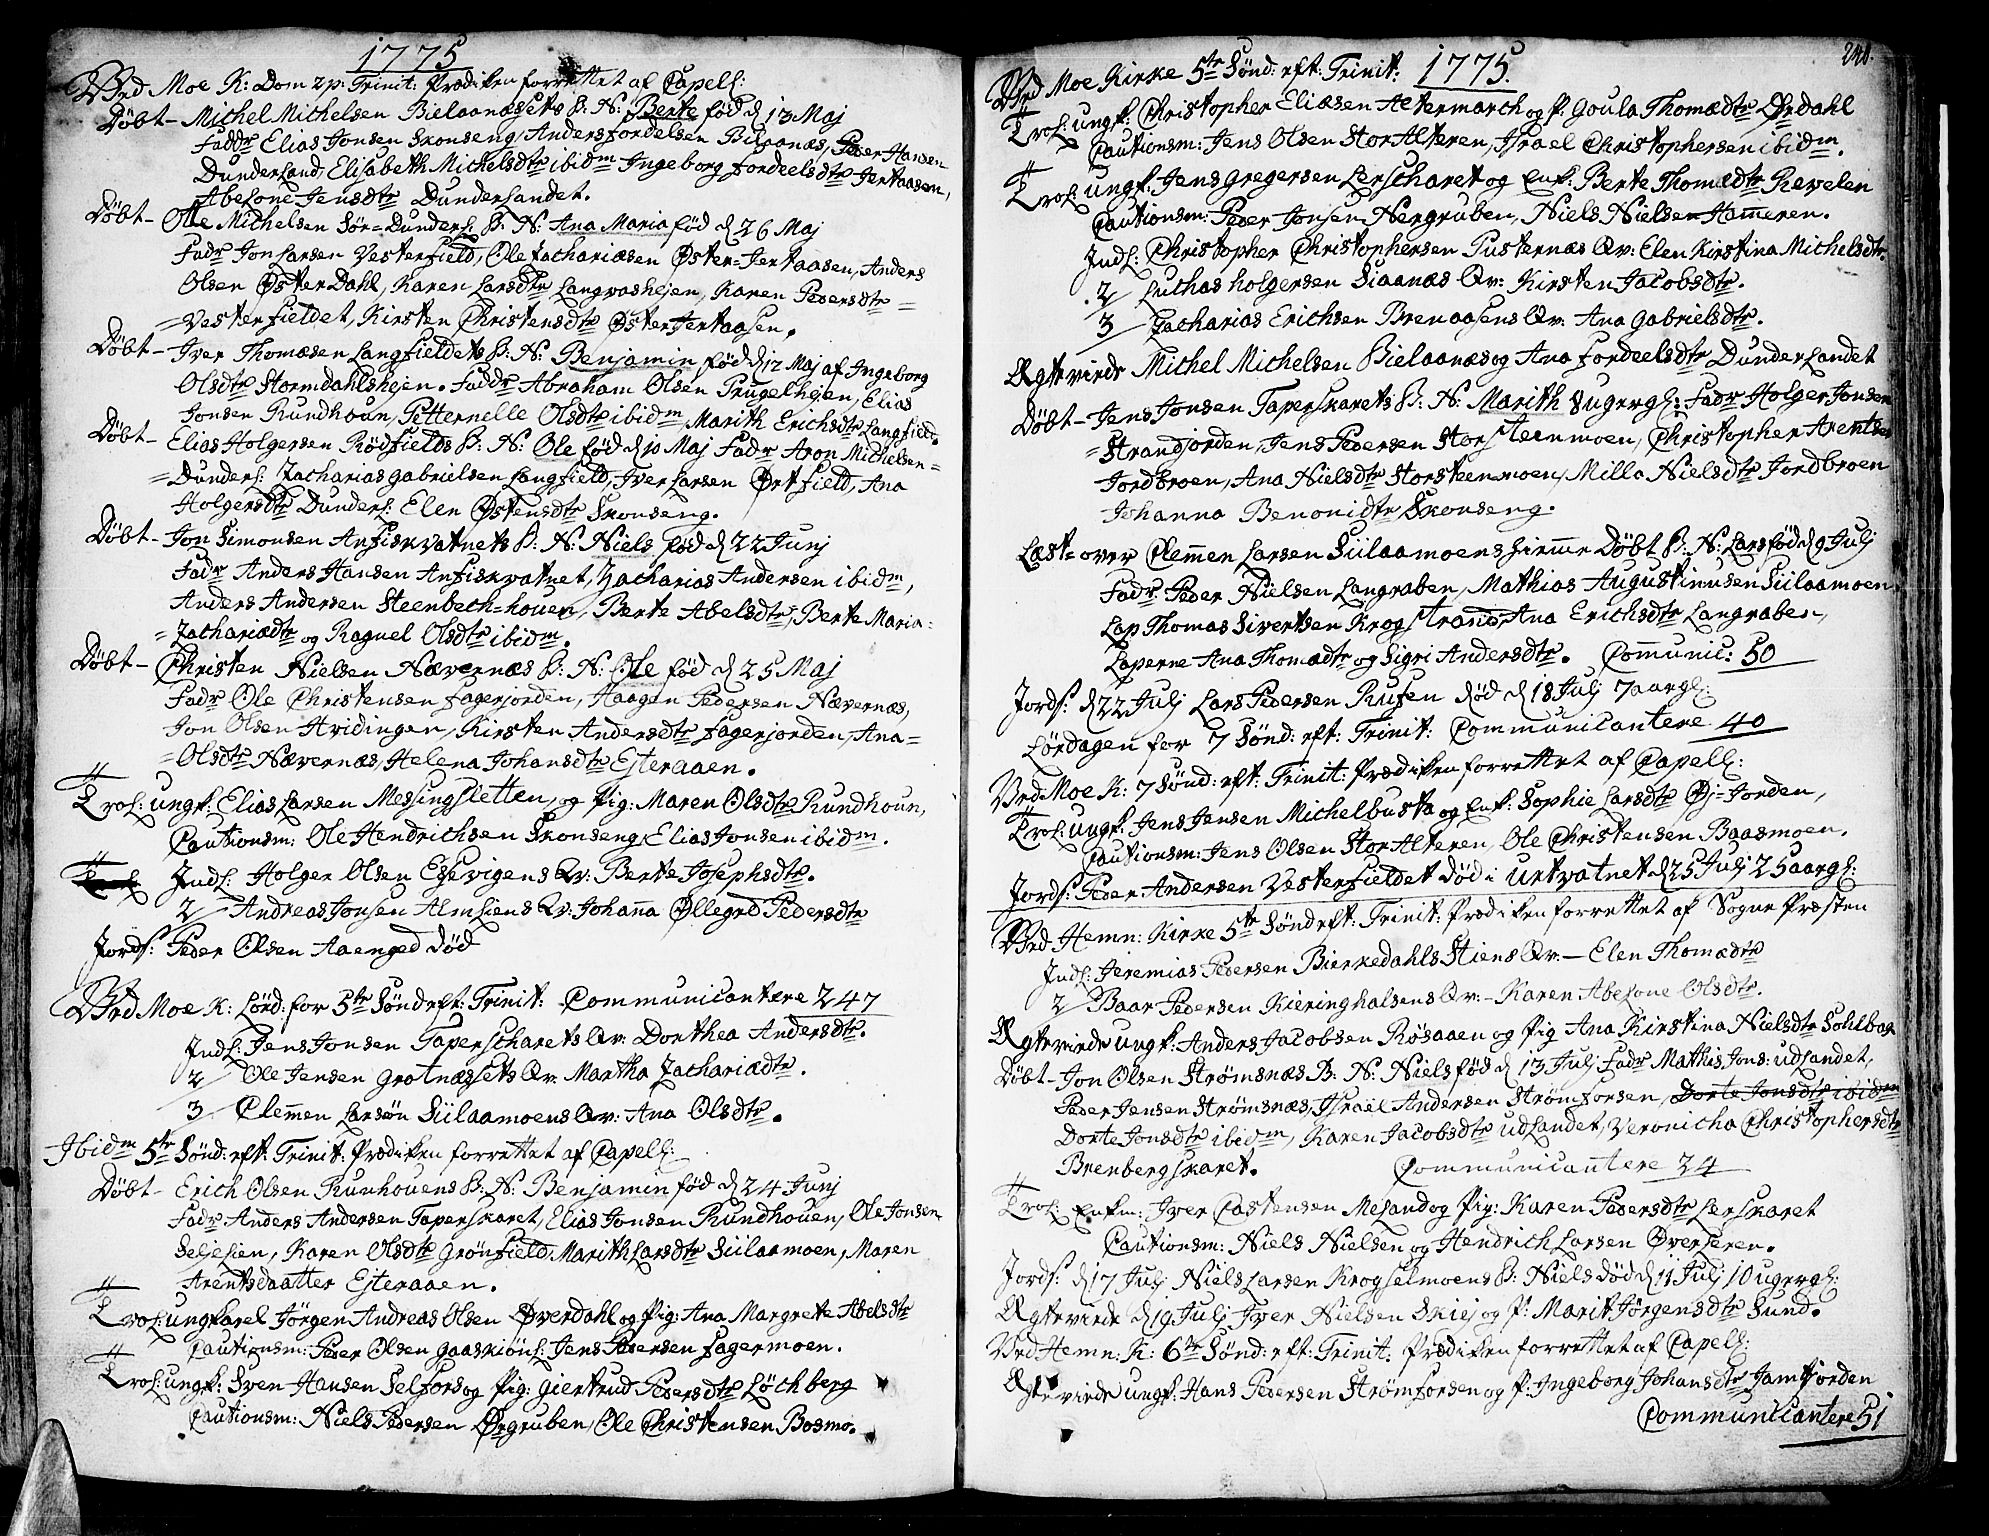 1775
Ved Moe K: Dom 2 p: Trinit: Prædiken forrettet af Capell:
Døbt – Michel Michelsen Bielaanæsets B: N: Berte fød d 13 Maj
Faddr Elias Jonsen Skonseng, Anders Fordelsen Bielaanæs, Peder Hansen
Dunderland, Elisabeth Michelsdtr ibidm Ingeborg Fordeelsdtr Jertaasen,
Abelone Jensdtr Dunderlandet.
Døbt – Ole Michelsen Sør-Dunderl: B: N: Ana Maria fød d 26 Maj
Fadr Jon Larsen Vesterfield, Ole Zachariæsen Øster-Jertaasen, Anders
Olsen ØsterDahl, Karen Larsdtr Langvashejen, Karen Pedersdtr =
= Vesterfieldet, Kirsten Christensdtr Øster Jertaasen.
Døbt – Iver Thomæsen Langfieldets B: N: Benjamin fød d 12 Maj af Ingeborg
Olsdtr Stormdahlshejen. Faddr Abraham Olsen Prügelhejen, Elias
Jonsen Rundhoun, Petternelle Olsdtr ibidm, Marith Erichsdtr Langfield.
Døbt – Elias Holgersen Rødfields B: N: Ole fød d 10 Maj Fadr Aron Michelsen =
= Dunderl: Zacharias Gabrielsen Langfield, Iver Larsen Ørtfield, Ana
Holgersdtr Dunderl: Elen Østensdtr Skonseng.
Døbt – Jon Simonsen Anfiskvatnets B: N: Niels fød d 22 Junj
Fadr Anders Hansen Anfiskvatnet, Zacharias Andersen ibidm,
Anders Andersen Steenbech-houen, Berte Abelsdtr, Berte Maria =
= Zachariædtr og Raguel Olsdtr ibidm.
Døbt – Christen Nielsen Nævernæs B: N: Ole fød d 25 Maj
Fadr Ole Christensen Fagerjorden, Haagen Pedersen Nævernæs,
Jon Olsen Hvidingen, Kirsten Andersdtr Fagerjorden, Ana =
= Olsdtr Nævernæs, Helena Johansdtr Ejteraaen.
Trol: ungk: Elias Larsen Messingsletten, og Pig: Maren Olsdtr Rundhoun,
Cautionsm: Ole Hendrichsen Skonseng, Elias Jonsen ibidm.
Indl: Holger Olsen Essevigens Qv: Berte Josephsdtr.
2/ Andreas Jonsen Almliens Qv: Johana Øllegrd Pedersdtr
Jords: Peder Olsen Aaenged død
Ved Moe K: Lørd: for 5te Sønd eft: Trinit: Communicantere 247
Indl: Jens Jonsen Taperscharets Qv: Dorthea Andersdtr.
2/ Ole Jensen Grotnæssets Qv: Martha Zachariædtr.
3 Clemen Larsøn Siilaamoens Qv: Ana Olsdtr.
Ibidm 5te Sønd: eft: Trinit: Prædiken forrettet af Capell:
Døbt – Erich Olsen Runhouens B: N: Benjamin fød d 24 Junj
Fadr Anders Andersen Taperskaret, Elias Jonsen Rundhouen, Ole Jonsen
Seljelien, Karen Olsdtr Grønfield. Marith Larsdtr Siilaamoen, Maren
Arentsdaatter Ejteraaen.
Trol: ungkarel Jörgen Andreas Olsen Øverdahl og Pig: Ana Margrete Abelsdtr
Cautionsm: Peder Olsen Gaaskiønl: Jens Pedersen Fagermoen.
Trol: ungk: Sven Hansen Selfors og Pig: Giertrud Pedersdtr Løchberg
Cautionsm: Niels Pedersen Ørgruben, Ole Christensen Bosmo.
248.
Ved Moe Kirke 5te Sønd: eft: Trinit: 1775.
Trol: ungk: Christopher Eliæsen Altermarch og P: Goula Thomædtr Ørdahl
Cautionsm: Jens Olsen StorAlteren, Israel Christophersen ibidm.
Trol: ungk: Jens Gregersen Lerscharet og Enk: Berte Thomædtr Revelen
Cautionsm: Peder Jonsen Nergruben, Niels Nielsen Hameren.
Indl: Christopher Christophersen Pusternæs Qv: Elen Kirstina Michelsdtr.
2/ Luchas Holgersen Siaanæs Qv: Kirsten Jacobsdtr.
3/ Zacharias Erichsen Brenaasens Qv: Ana Gabrielsdtr.
Ægteviede Michel Michelsen Bielaanæs og Ana Fordeelsdtr Dunderlandet
Døbt – Jens Jonsen Taperskarets B: N: Marith 8 ugergl: Fadr Holger Jonsen
= Strandjorden, Jens Pedersen Storsteenmoen, Christopher Arentsen
Jordbroen, Ana Nielsdtr Storsteenmoen, Milla Nielsdtr Jordbroen
Johanna Benonidtr Skonseng.
Læst-over Clemen Larsen Siilaamoens hiemme Døbt B: N: Lars fød d 9 Julj
Fadr Peder Nielsen Langraben, Mathias Augustinusen Siilaamoen
Lap Thomas Sivertsen Krogstrand, Ana Erichsdtr Langraben,
Laperne Ana Thomædtr og Sigri Andersdtr. Comunic: 50
Jords: d 22 Julj Lars Pedersen Rufsen død d 18 Julj 7 aargl:
Lørdagen for 7 Sønd: eft: Trinit: Communicantere 40
Ved Moe K: 7 Sønd: eft: Trinit: Prædiken forrettet af Capell:
Trol: ungk: Jens Jensen Michelbusta og Enk: Sophie Larsdtr Øj-Jorden,
Cautionsm: Jens Olsen StorAlteren, Ole Christensen Baasmoen.
Jords: Peder Andersen Vesterfieldet død i Urtvatnet d 25 Julj 25 aargl:
Ved Hemn: Kirke 5te Sønd eft: Trinit: Prædiken forrettet af Sogne Præsten
Indl: Jeremias Pedersen Bierkedahls Stiens Qv: – Elen Thomædtr
2/ Baar Pedersen Kieringhalsens Qv: – Karen Abelone Olsdtr.
Ægteviede ungk: Anders Jacobsen Røsaaen og Pig Ana Kirstina Nielsdtr Sohlbak
Døbt – Jon Olsen Strømsnæs B: N: Niels fød d 13 Julj Fadr Mathis Jons: udlandet,
Peder Jensen Strømsnæs, Israel Andersen Strømforsen, Dorte Jonsdtr ibidm
Dorte Jonsdtr ibidm, Karen Jacobsdtr udlandet, Veronicha Christophersdtr
Brenbergskaret. Communicantere 24
Trol: Enkm: Iver Castensen Mesland og Pig: Karen Pedersdtr Lerskaret
Cautionsm: Niels Nielsen og Hendrich Larsen Øverleren.
Jords: d 17 Julj Niels Larsen Krogselmoens B: Niels død d 11 Julj 10 ugergl:
Ægteviede d 19 Julj Iver Nielsen Skiej og P: Marit Jørgensdtr Sund.
Ved Hemn: K: 6te Sønd: eft: Trinit: Prædiken forrettet af Capell:
Ægteviede ungk: Hans Pedersen Strømforsen og P: Ingeborg Johansdtr Jamtjorden
Communicantere 51